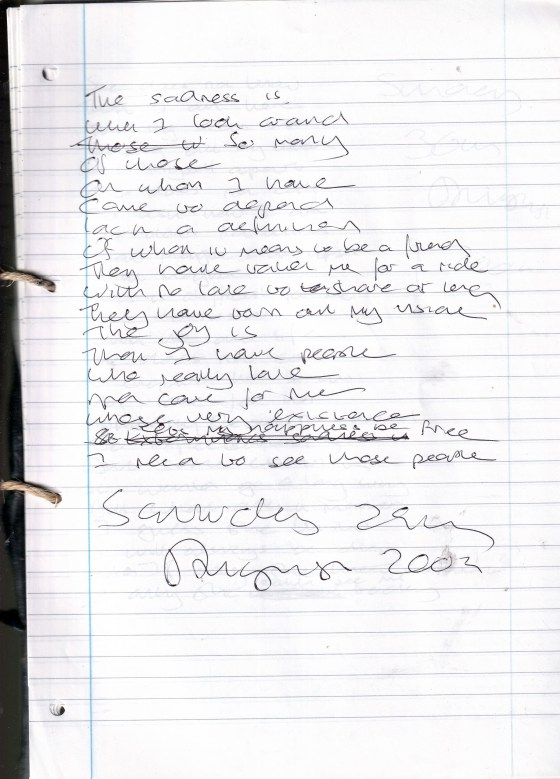 The sadness is
when I look around
those w So many
Of those
On whom I have
Come to depend
lack a definition
Of what it means to be a friend
They have taken me for a ride
With no love to share or
They have torn out my inside
The joy is
That I have people
who really love
And care for me
whose very existence
lets my happiness be free
I need to see those people
Saturday
August 2002